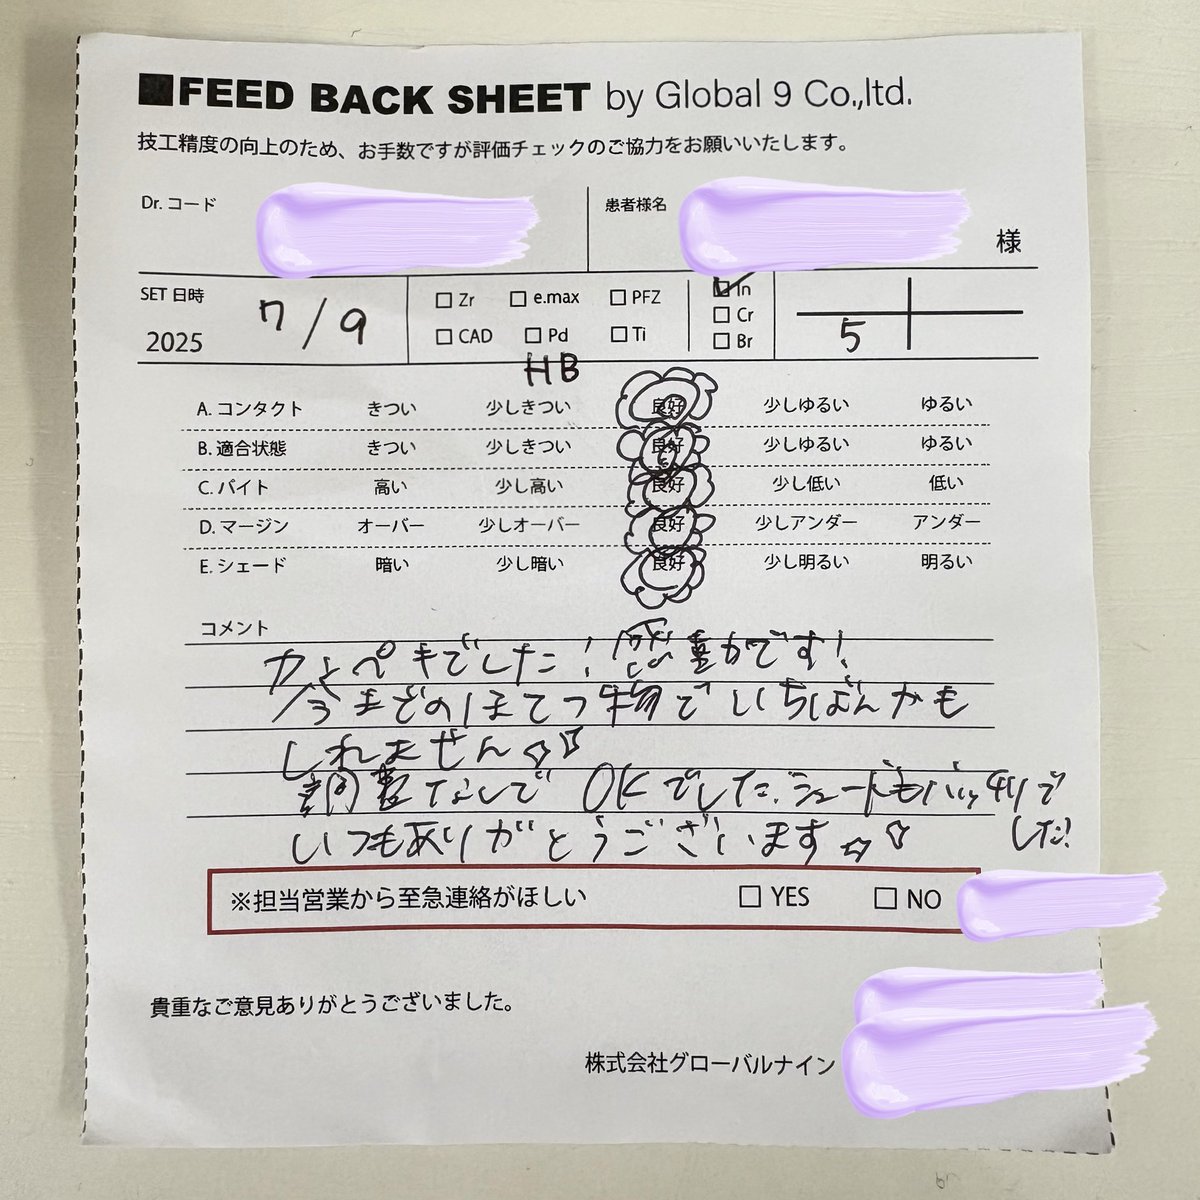 ■FEED BACK SHEET by Global 9 Co.,ltd.
技工精度の向上のため、お手数ですが評価チェックのご協力をお願いいたします。
Dr. コード
患者様名
様
SET 日時
2025
7/9
□ Zr □ e.max □ PFZ
□ CAD □ Pd □ Ti
HB
☑ In
□ Cr
□ Br
5
A. コンタクト きつい 少しきつい 良好 少しゆるい ゆるい
B. 適合状態 きつい 少しきつい 良好 少しゆるい ゆるい
C. バイト 高い 少し高い 良好 少し低い 低い
D. マージン オーバー 少しオーバー 良好 少しアンダー アンダー
E. シェード 暗い 少し暗い 良好 少し明るい 明るい
コメント
カンペキでした!感動です!
今までのほてつ物でいちばんかも
しれません☆☆
調整なしでOKでした.シェードもバッチリで
した!
いつもありがとうございます☆☆
※担当営業から至急連絡がほしい □ YES □ NO
貴重なご意見ありがとうございました。
株式会社グローバルナイン